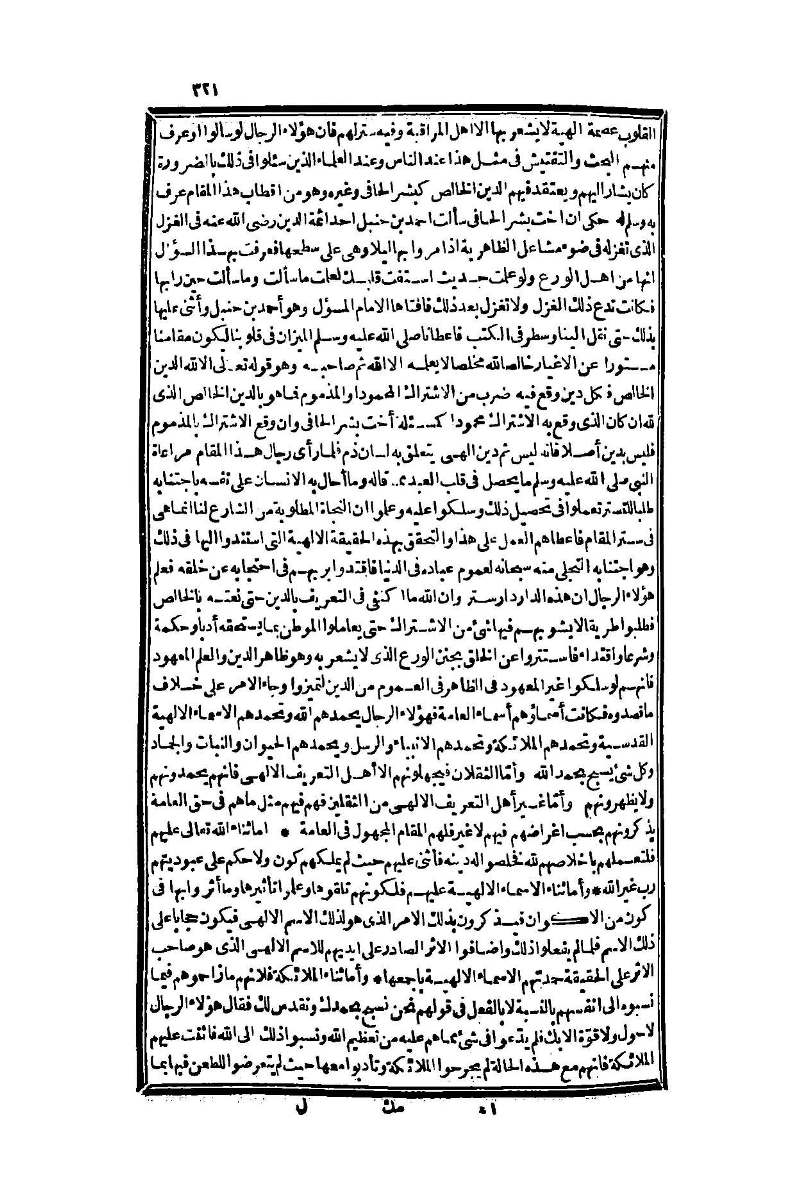 ٣٢١
القلوب عصمة الهية لا يشعر بها الا اهل المراقبة وفيه ستر لهم فان هؤلاء الرجال لو سألوا أو عرف
منهم البحث والتفتيش فى مثل هذا عند الناس وعند العلماء الذين سئلوا فى ذلك بالضرورة
كان يشار اليهم ويعتقد فيهم الدين الخالص كبشر الحافى وغيره وهو من اقطاب هذا المقام عرف
به وسلم له حكى ان اخت بشر الحافى سألت احمد بن حنبل احد ائمة الدين رضى الله عنه فى الغزل
الذى تغزله فى ضوء مشاعل الظاهرية اذا مروا بها ليلا وهى على سطحها فعرفت بهذا السؤال
انها من اهل الورع ولو عملت حديث استفت قلبك لعلمت ما سألت وما سألت حين رابها
فكانت تدع ذلك الغزل ولا تغزل بعد ذلك فافتاها الامام المسؤل وهو أحمد بن حنبل وأثنى عليها
بذلك حتى نقل الينا وسطر فى الكتب فاعطانا صلى الله عليه وسلم الميزان فى قلوبنا ليكون مقامنا
مستورا عن الاغيار خالصا لله مخلصا لا يعلمه الا الله ثم صاحبه وهو قوله تعالى الا لله الدين
الخالص فكل دين وقع فيه ضرب من الاشتراك المحمود او المذموم فما هو بالدين الخالص الذى
لله ان كان الذى وقع به الاشتراك محمودا كمسئلة أخت بشر الحافى وان وقع الاشتراك بالمذموم
فليس بدين أصلا فانه ليس ثم دين الهى يتعلق به لسان ذم فلما رأى رجال هذا المقام مراعاة
النبى صلى الله عليه وسلم ما يحصل فى قلب العبد قاله وما أحال به الانسان على نفسه باجتنابه
طلبا للتستر تعملوا فى تحصيل ذلك وسلكوا عليه وعلموا ان النجاة المطلوبة من الشارع لنا انما هى
فى ستر المقام فاعطاهم العمل على هذا والتحقق بهذه الحقيقة الالهية التى استندوا اليها فى ذلك
وهو اجتنابه التجلى منه سبحانه لعموم عباده فى الدنيا فاقتدوا بربهم فى احتجابه عن خلقه فعلم
هؤلاء الرجال ان هذه الدار دار ستر وان الله ما اكتفى فى التعريف بالدين حتى نعته بالخالص
فطلبوا طريقا لا يشوبهم فيها شئ من الاشتراك حتى يعاملوا الموطن بما يستحقه أدبا وحكمة
وشرعا واقتداء فاستتروا عن الخلق بجنن الورع الذى لا يشعر به وهو ظاهر الدين والعلم المعهود
فانهم لو سلكوا غير المعهود فى الظاهر فى العموم من الدين لتميزوا وجاء الامر على خلاف
ما قصدوه فكانت أسماؤهم أسماء العامة فهؤلاء الرجال يحمدهم الله وتحمدهم الاسماء الالهية
القدسية وتحمدهم الملائكة وتحمدهم الانبياء والرسل ويحمدهم الحيوان والنبات والجماد
وكل شئ يسبح بحمد الله وأما الثقلان فيجهلونهم الا أهل التعريف الالهى فانهم يحمدونهم
ولا يظهرونهم وأما غير أهل التعريف الالهى من الثقلين فهم فيهم مثل ما هم فى حق العامة
يذكرونهم بحسب اغراضهم فيهم لا غير فلهم المقام المجهول فى العامة * اما ثناء الله تعالى عليهم
فلتعملهم باخلاصهم لله فخلصوا له دينه فأثنى عليهم حيث لم يملكهم كون ولا حكم على عبوديتهم
رب غير الله * وأما ثناء الاسماء الالهية عليهم فلكونهم تلقوها وعلموا تأثيرها وما أثروا بها فى
كون من الاكوان فيذكرون بذلك الامر الذى هو لذلك الاسم الالهى فيكون حجابا على
ذلك الاسم فلما لم يفعلوا ذلك واضافوا الاثر الصادر على ايديهم للاسم الالهى الذى هو صاحب
الاثر على الحقيقة حمدتهم الاسماء الالهية باجمعها * وأما ثناء الملائكة فلانهم ما زاحموهم فيما
نسبوه الى انفسهم بالنسبة لا بالفعل فى قولهم نحن نسبح بحمدك ونقدس لك فقال هؤلاء الرجال
لا حول ولا قوة الا بك فلم يدعوا فى شئ مما هم عليه من تعظيم الله ونسبوا ذلك الى الله فاثنت عليهم
الملائكة فانهم مع هذه الحالة لم يجرحوا الملائكة وتأدبوا معها حيث لم يتعرضوا للطعن فيها بما
٤١ مك ل